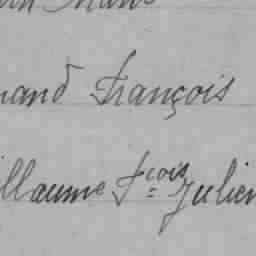 nand François
illaume Fçois Julien